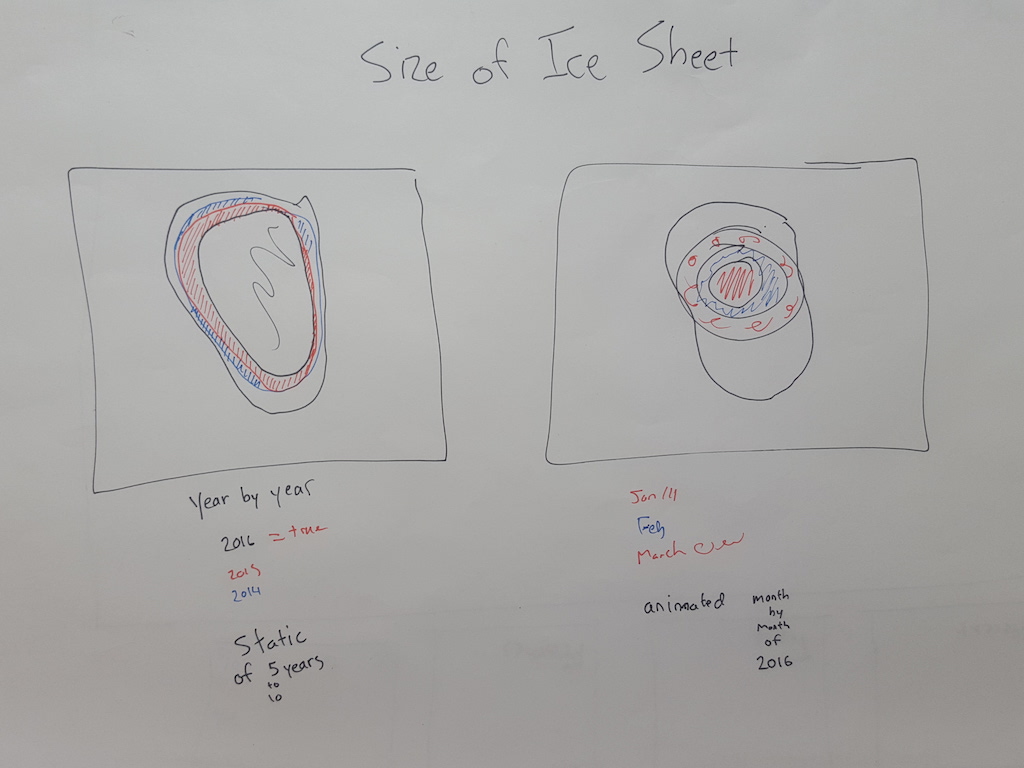 Size of Ice Sheet
Year by year
2016 = true
2015
2014
Static
of 5 years
to
10
Jan ////
Feb
March
animated
month
by
month
of
2016